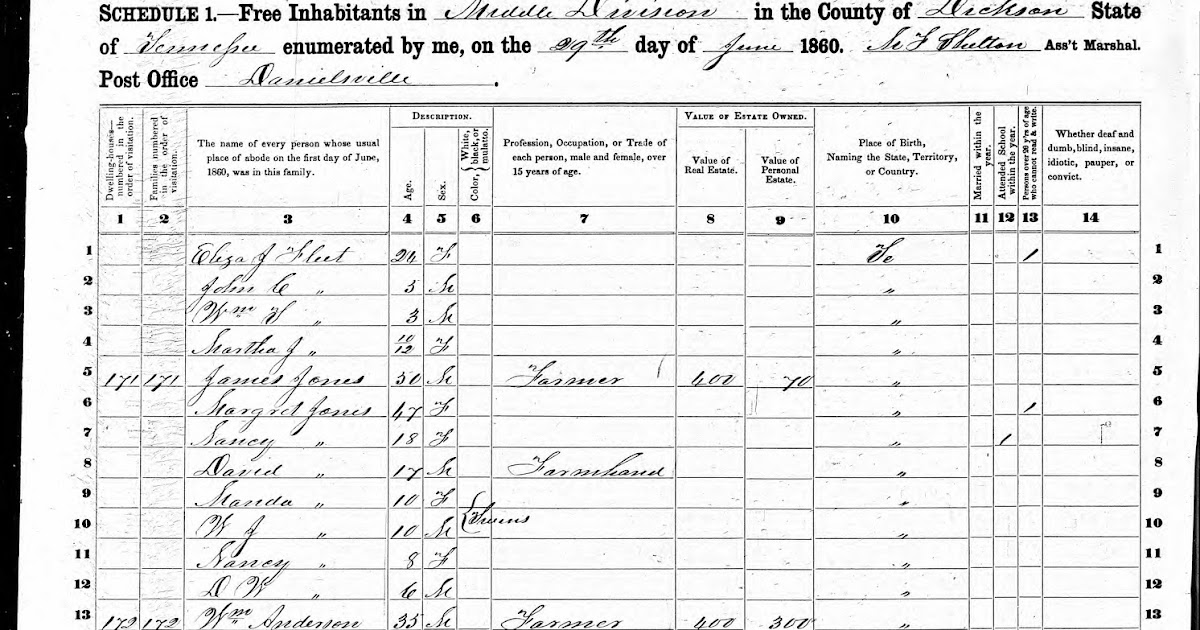 SCHEDULE 1.—Free Inhabitants in Middle Division in the County of Dickson State
of Tennessee enumerated by me, on the 29th day of June 1860. Shelton Ass't Marshal.
Post Office Danielsville.
DESCRIPTION. VALUE OF ESTATE OWNED.
Dwelling-houses—numbered in the order of visitation. Families numbered in the order of visitation. The name of every person whose usual place of abode on the first day of June, 1860, was in this family. Age. Sex. Color, { White, black, or mulatto. Profession, Occupation, or Trade of each person, male and female, over 15 years of age. Value of Real Estate. Value of Personal Estate. Place of Birth, Naming the State, Territory, or Country. Married within the year. Attended School within the year. Persons over 20 y'rs of age who cannot read & write. Whether deaf and dumb, blind, insane, idiotic, pauper, or convict.
1 2 3 4 5 6 7 8 9 10 11 12 13 14
1 Eliza J Fleet 24 F Te / 1
2 John C " 5 M " 2
3 Wm " 3 M " 3
4 Martha J " 10/12 F " 4
5 171 171 James Jones 50 M Farmer 400 70 " 5
6 Margret Jones 47 F " / 6
7 Nancy " 18 F " / 7
8 David " 17 M Farmhand " 8
9 Manda " 10 F { Twins " 9
10 W J " 10 M " 10
11 Nancy " 8 F " 11
12 D W " 6 M " 12
13 172 172 Wm Anderson 35 M Farmer 400 300 " 13